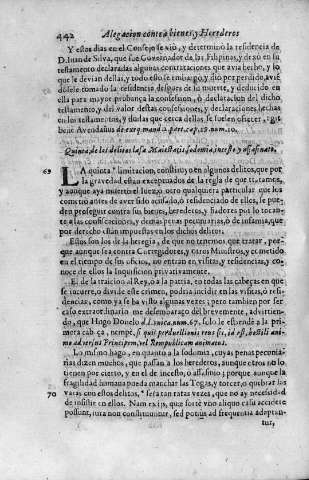 442 Alegacion contra bienes, y Herederos
Y estos dias en el Consejo se vió, y determinó la residencia de
D. Iuan de Silva, que fue Governador de las Filipinas, dexó en su
testamento declaradas algunas contrataciones que avia hecho, y lo
que le devian dellas, y todo esto se embargó, y dió por perdido, avié
dosele tomado la residencia despues de su muerte, y deducido en
ella para mayor probança la confession, ó declaracion del dicho
testamento, y del valor destas confessiones, declaraciones hechas
en los testamentos, y dudas que cerca dellas, se suelen ofrecer, es-
bibe Avendañus de exeq. mand. 2. part. cap. 18. num. 10.
Quinta, de los delitos laesae Maiestatis, sodomia, incesto y assassinato.
69 LA quinta limitacion, consistirá en algunos delitos, que por
la gravedad están exceptuados de la regla de que tratamos,
y aunque aya muerto el Iuez, ó otro qualquiera particular que los
cometió antes de aver sido acusado, ó residenciado dellos, se pue-
den proseguir contra sus bienes, herederos, y fiadores por lo tocan-
te à las confiscaciones, y demas penas pecuniarias, ó de infamia, que
por derecho están impuestas en los dichos delitos.
Estos son los de la heregia, de que no tenemos que tratar, por-
que aunque sea contra Corregidores, y otros Ministros, y cometido
en el tiempo de sus oficios, no entran en visitas, y residencias, y co-
noce de ellos la Inquisicion privativamente.
El de la traicion al Rey, ó a la patria, en todas las cabeças en que
se incurre, ó divide este crimen, podria incidir en las visitas, ó resi-
dencias, como ya se ha visto algunas vezes; pero tambien por ser
caso extraordinario me desembaraço del brevemente, advirtien-
do, que Hugo Donelo ad l. unica. num. 67. solo le estiende a la pri-
mera cabeça, nempe, si quis perduellionis reus sit, id est, hostili ani-
mo adversus Principem, vel Rempublicam animatus.
Lo mismo hago, en quanto a la sodomia, cuyas penas pecunia-
rias dizen muchos, que passan a los herederos, aunque otros no lo
tienen por cierto, y en el de incesto, ó assasinio; porque aunque la
fragilidad humana pueda manchar las Togas, y torcer, ó quebrar las
70 varas con estos delitos, serán tan raras vezes, que no ay necessidad
de insistir en ellos. Nam ex iis, quae forte uno aliquo casu accidere
possunt, iura non constituuntur, sed potius ad frequentia adaptan-
tur,